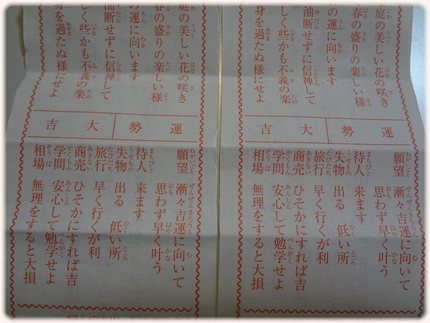 庭の美しい花の咲き
春の盛りの楽しい様
の運に向います
油断せずに信神して
しく些かも不義の楽
身を過たぬ様にせよ
運勢
大吉
願望 漸々吉運に向いて
思わず早く叶う
待人 来ます
失物 出る 低い所
旅行 早く行くが利
商売 ひそかにすれば吉
学問 安心して勉学せよ
相場 無理をすると大損
庭の美しい花の咲き
春の盛りの楽しい様
の運に向います
油断せずに信神して
しく些かも不義の楽
身を過たぬ様にせよ
運勢
大吉
願望 漸々吉運に向いて
思わず早く叶う
待人 来ます
失物 出る 低い所
旅行 早く行くが利
商売 ひそかにすれば吉
学問 安心して勉学せよ
相場 無理をすると大損